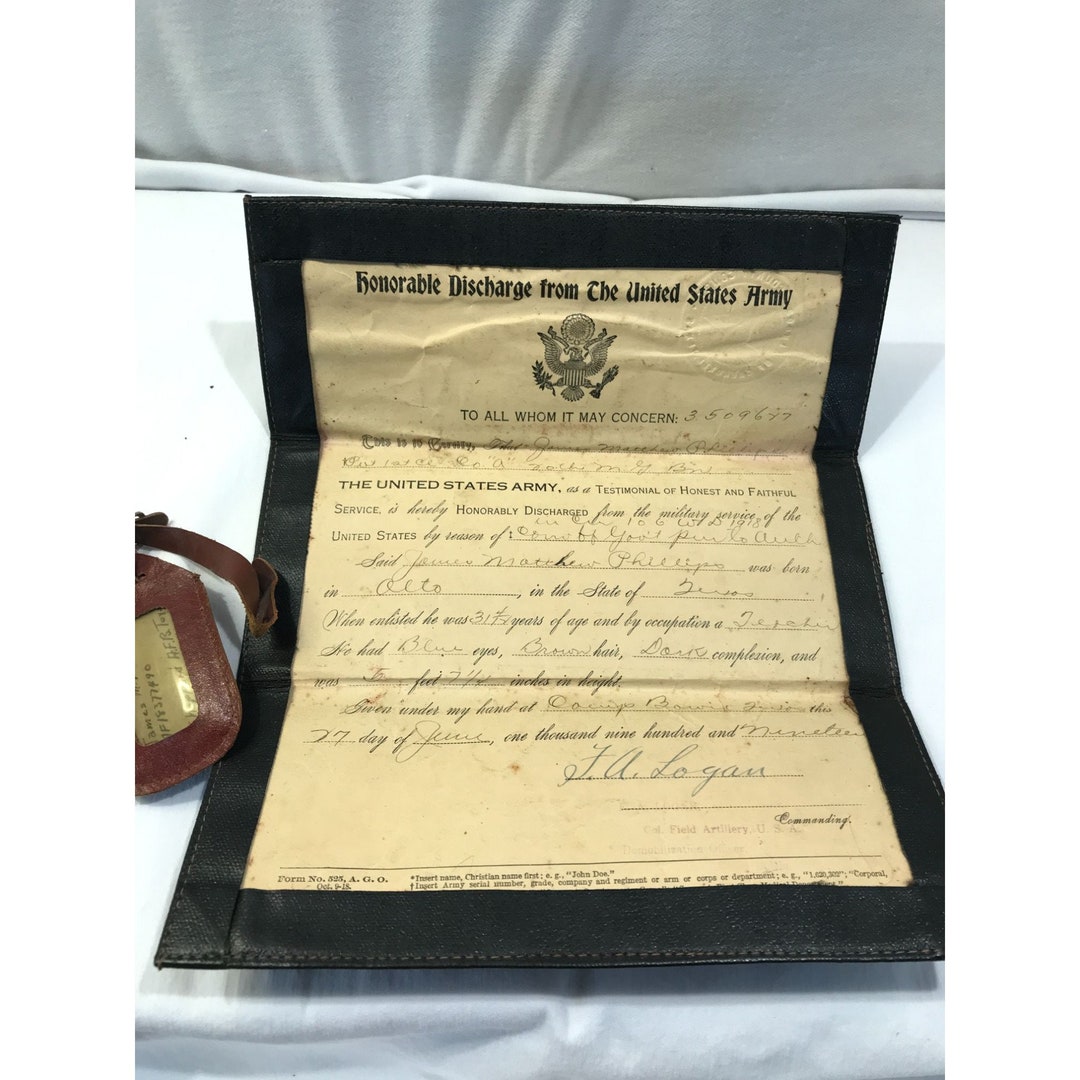 Honorable Discharge from The United States Army
TO ALL WHOM IT MAY CONCERN: 3,509,627
This is to Certify, That James Matthew Phillips
Pvt 1st Cl Co "A" M G Bn
THE UNITED STATES ARMY, as a TESTIMONIAL OF HONEST AND FAITHFUL
SERVICE, is hereby HONORABLY DISCHARGED from the military service of the
in Cir 106 W D 1918
UNITED STATES by reason of: Conv of Gov't pur to Auth
Said James Matthew Phillips was born
in Alto, in the State of Texas
When enlisted he was 31 years of age and by occupation a Teacher
He had Blue eyes, Brown hair, Dark complexion, and
was feet 7 1/2 inches in height.
Given under my hand at Camp Bowie Texas this
27 day of June, one thousand nine hundred and Nineteen
F. A. Logan
Commanding.
Col. Field Artillery, U. S. A.
Demobilization Officer
Form No. 525, A. G. O.
Oct. 9-18.
*Insert name, Christian name first; e. g., "John Doe."
†Insert Army serial number, grade, company and regiment or arm or corps or department; e. g., "1,620,302"; "Corporal,
James M
AF18377490
A.F.B. Tex